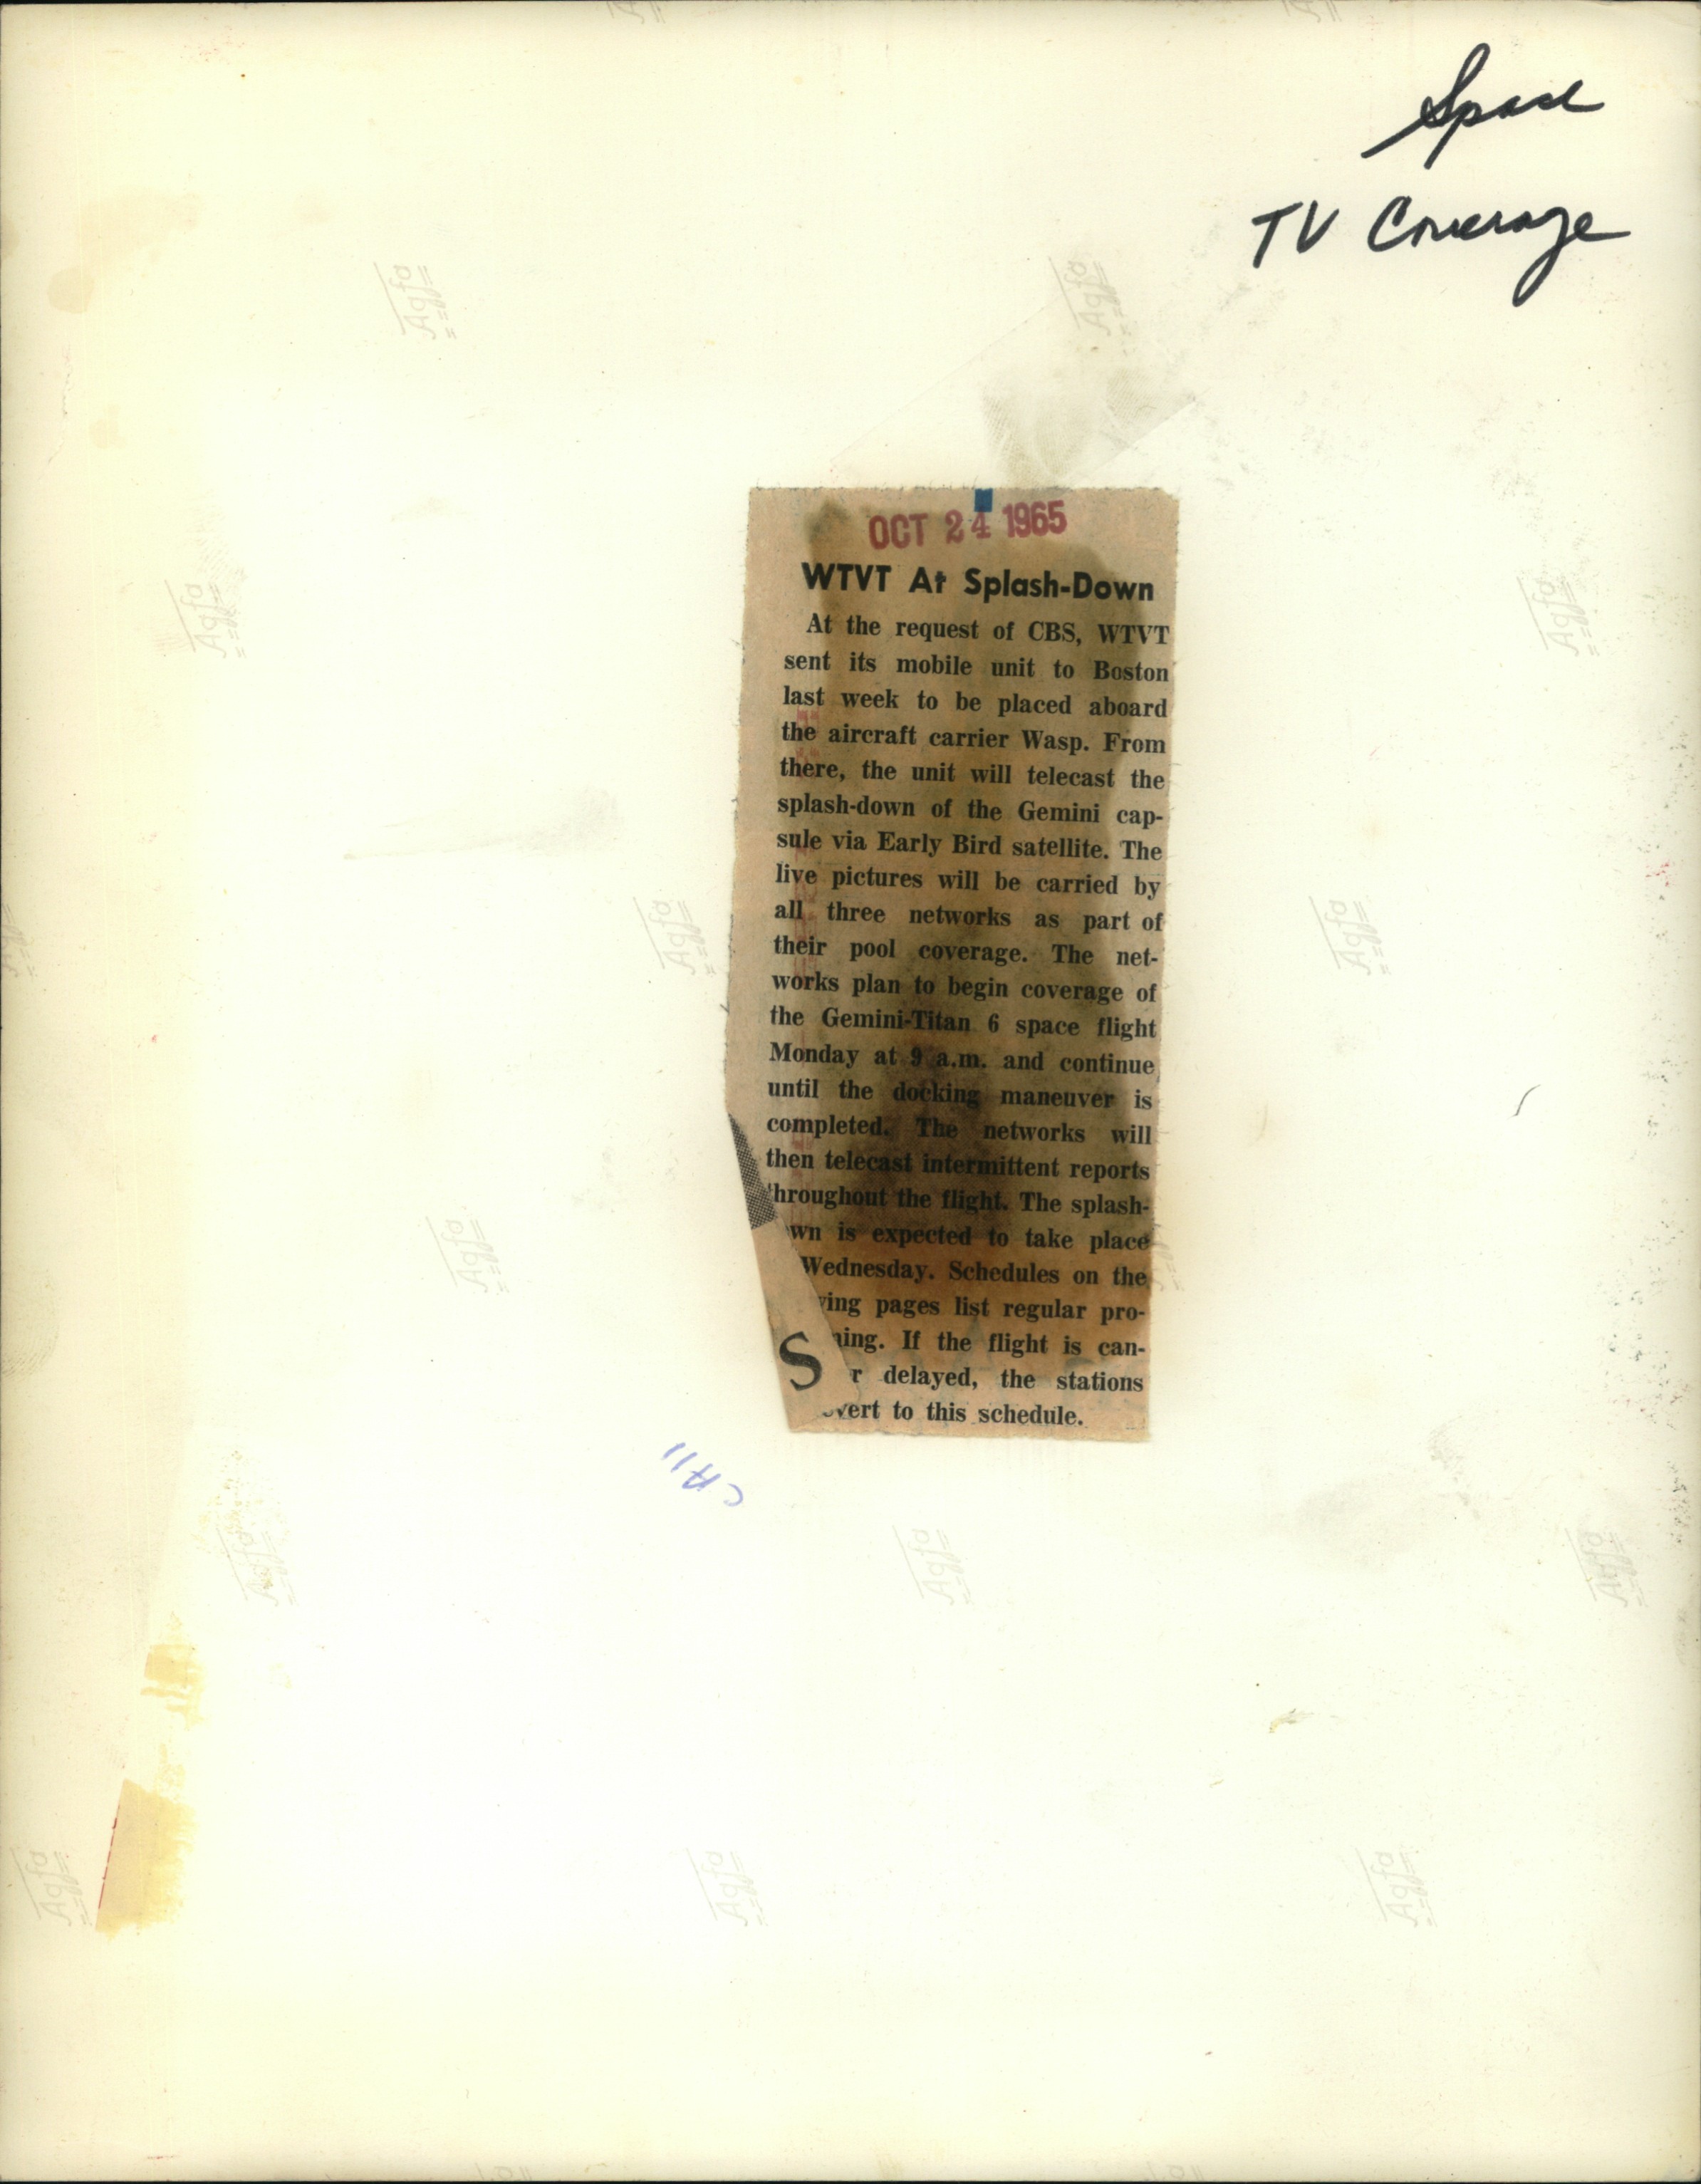 Space
TV Coverage
OCT 24 1965
WTVT At Splash-Down
At the request of CBS, WTVT
sent its mobile unit to Boston
last week to be placed aboard
the aircraft carrier Wasp. From
there, the unit will telecast the
splash-down of the Gemini cap-
sule via Early Bird satellite. The
live pictures will be carried by
all three networks as part of
their pool coverage. The net-
works plan to begin coverage of
the Gemini-Titan 6 space flight
Monday at 9 a.m. and continue
until the docking maneuver is
completed. The networks will
then telecast intermittent reports
hroughout the flight. The splash-
wn is expected to take place
Wednesday. Schedules on the
ving pages list regular pro-
ning. If the flight is can-
r delayed, the stations
vert to this schedule.
S
Agfa
Agfa
Agfa
Agfa
Agfa
Agfa
Agfa
Agfa
Agfa
Agfa
Agfa
Agfa
Agfa